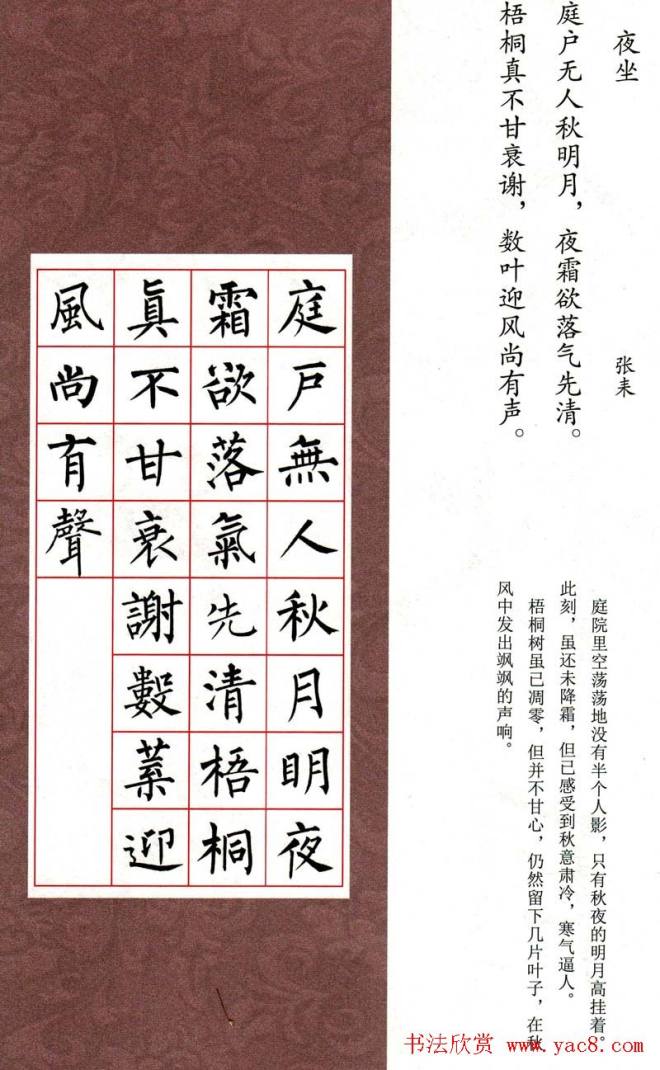 夜坐 张耒
庭户无人秋明月，夜霜欲落气先清。
梧桐真不甘衰谢，数叶迎风尚有声。
庭院里空荡荡地没有半个人影，只有秋夜的明月高挂着。
此刻，虽还未降霜，但已感受到秋意肃冷，寒气逼人。
梧桐树虽已凋零，但并不甘心，仍然留下几片叶子，在秋
风中发出飒飒的声响。
庭戶無人秋月明夜
霜欲落氣先清梧桐
眞不甘衰謝數葉迎
風尚有聲
书法欣赏 www.yac8.com